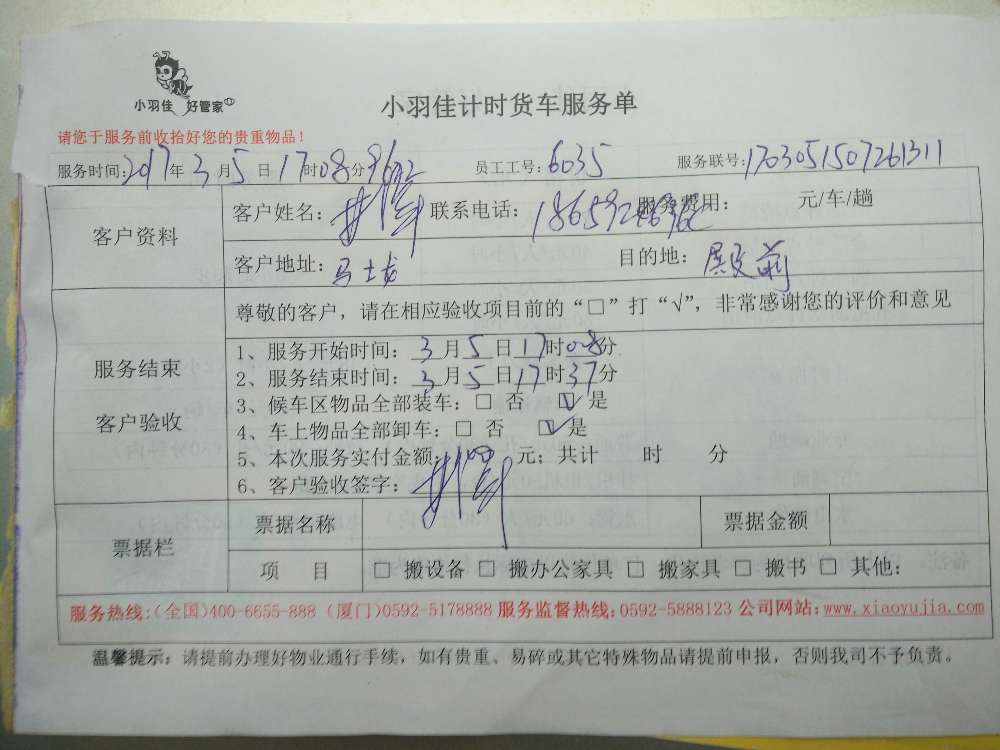 小羽佳 好管家
小羽佳计时货车服务单
请您于服务前收拾好您的贵重物品!
服务时间:2017年3月5日17时08分 员工工号:6035 服务联号:1703051507261311
客户资料
客户姓名: 联系电话: 服务费用: 元/车/趟
客户地址:马士龙 目的地:殿前
服务结束
客户验收
尊敬的客户,请在相应验收项目前的“□”打“√”,非常感谢您的评价和意见
1、服务开始时间:3月5日17时08分
2、服务结束时间:3月5日17时37分
3、候车区物品全部装车:□ 否 ☑ 是
4、车上物品全部卸车:□ 否 ☑ 是
5、本次服务实付金额:100元;共计 时 分
6、客户验收签字:
票据栏
票据名称 票据金额
项 目 □ 搬设备 □ 搬办公家具 □ 搬家具 □ 搬书 □ 其他:
服务热线:(全国)400-6655-888 (厦门)0592-5178888 服务监督热线:0592-5888123 公司网站:www.xiaoyujia.com
温馨提示:请提前办理好物业通行手续,如有贵重、易碎或其它特殊物品请提前申报,否则我司不予负责。